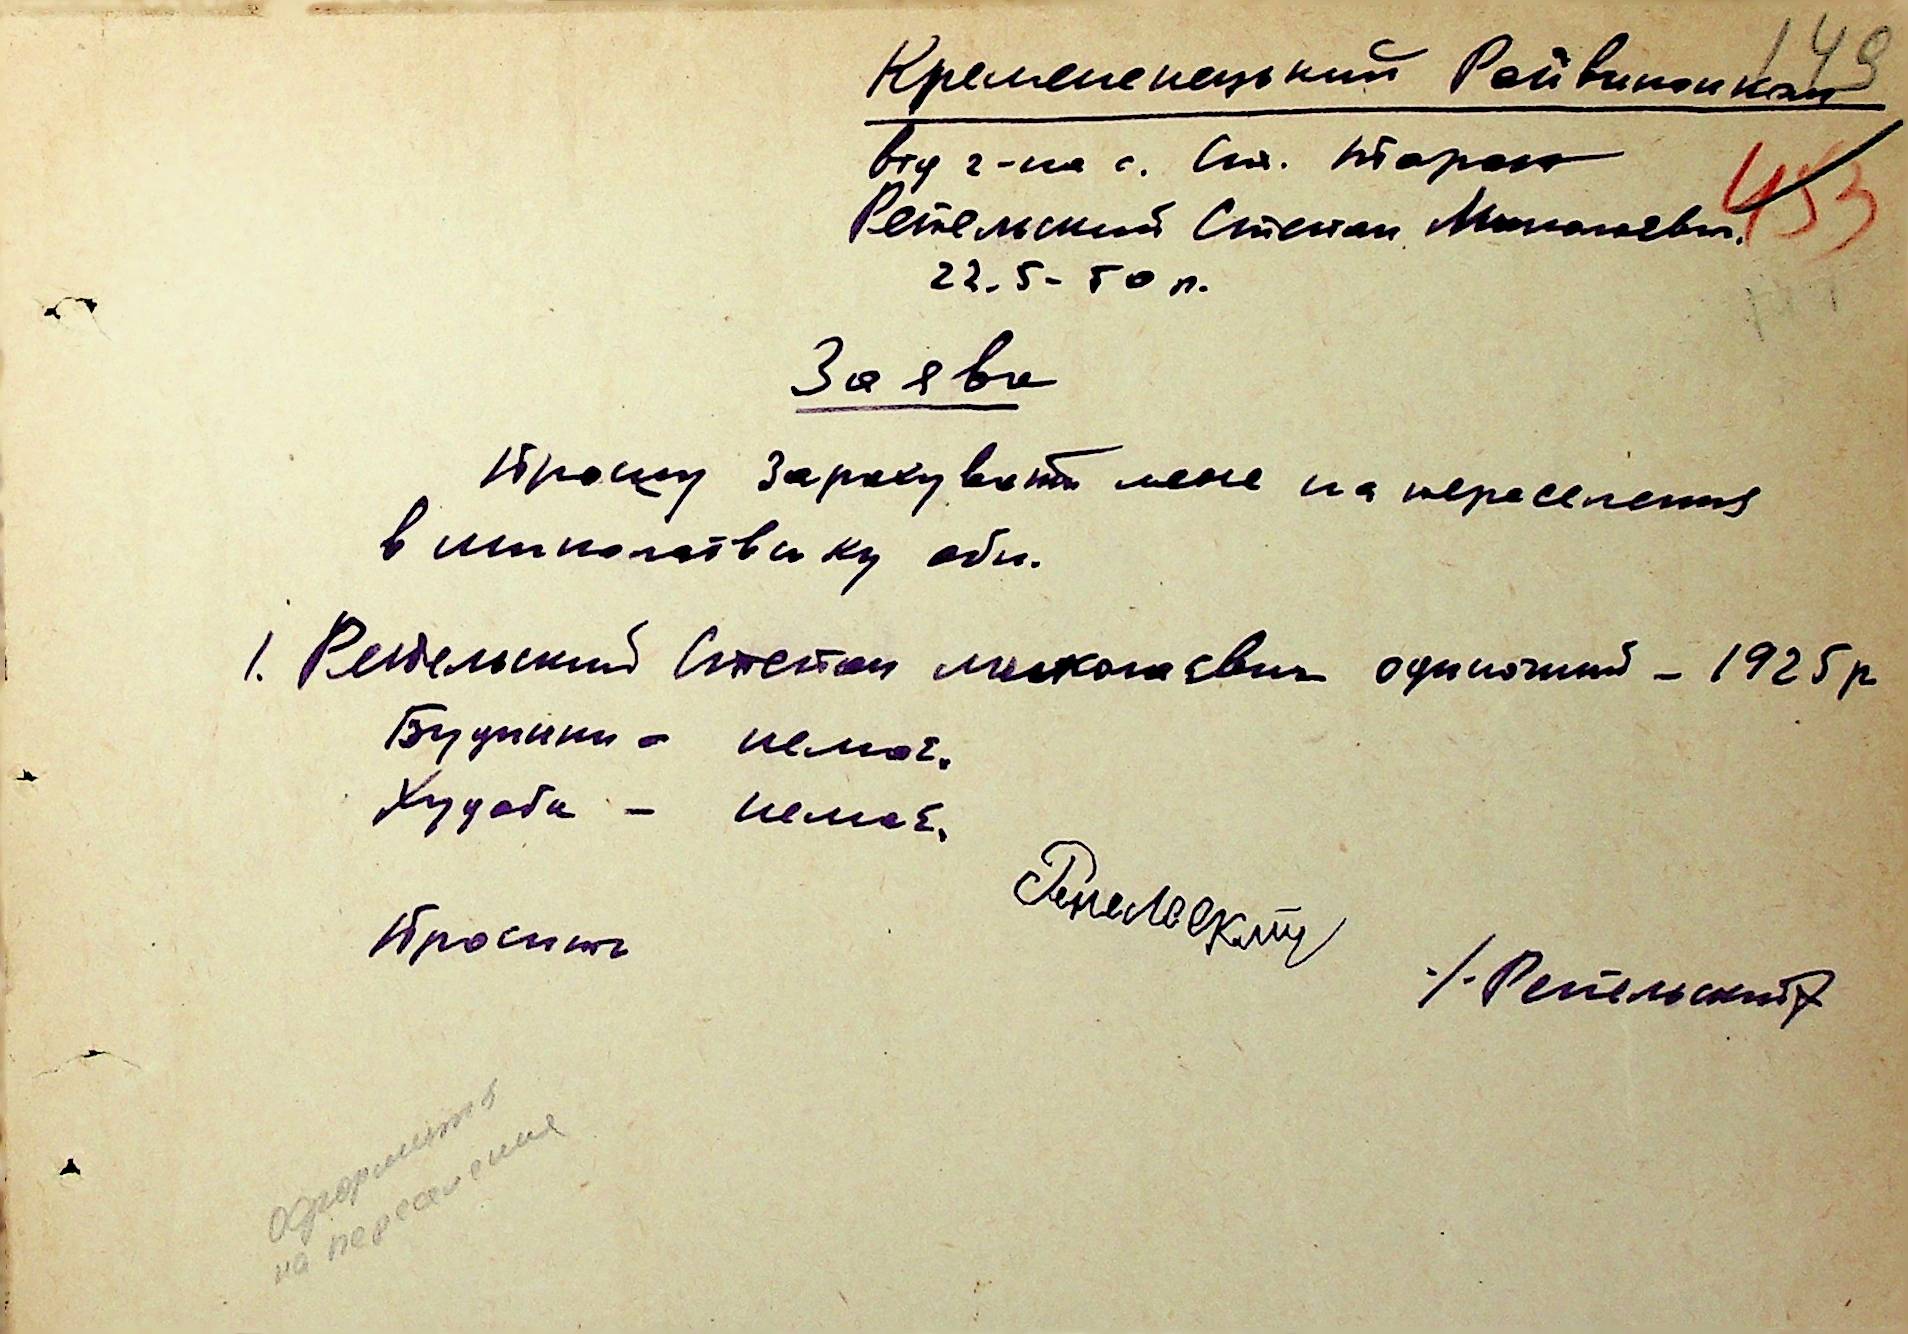 149
Кременецький Райвиконком
від г-на с. Ст. Тараж
453
Репельский Степан Миколаевич.
22.5-50 р.
Заява
Прошу зарахувати мене на переселення
в миколаівську обл.
1. Репельский Степан миколаевич одиночний – 1925 р
Будинки – немає.
Худоби – немає.
Просить
Репельский
-/- Репельский
Оформить
на переселение